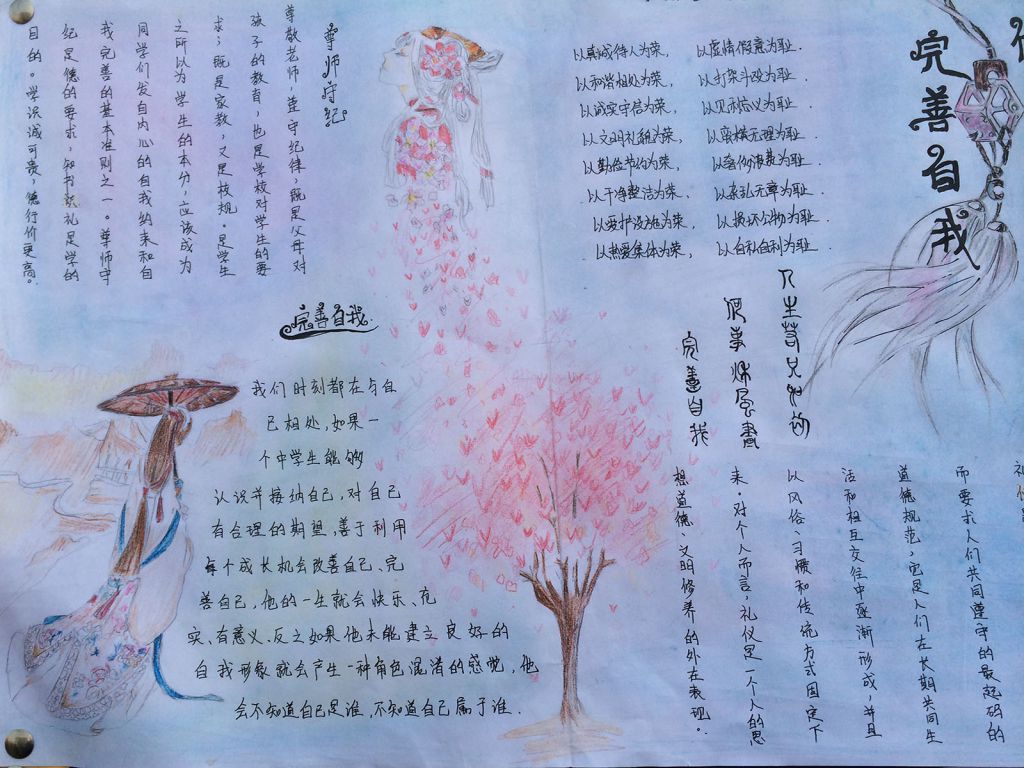 完善自我
尊师守纪
尊敬老师，遵守纪律，既是父母对
孩子的教育，也是学校对学生的要
求；既是家教，又是校规。是学生
之所以为学生的本分，应该成为
同学们发自内心的自我约束和自
我完善的基本准则之一。尊师守
纪是德的要求，知书识礼是学的
目的。学识诚可贵，德行价更高。
以真诚待人为荣， 以虚情假意为耻．
以和谐相处为荣， 以打架斗殴为耻．
以诚实守信为荣， 以见利忘义为耻．
以文明礼貌为荣， 以蛮横无理为耻．
以勤俭节约为荣， 以奢侈浪费为耻．
以干净整洁为荣， 以杂乱无章为耻．
以爱护设施为荣， 以损坏公物为耻．
以热爱集体为荣， 以自私自利为耻．
人生若只如初
何事秋风悲画
完善自我
完善自我．
我们时刻都在与自
己相处，如果一
个中学生能够
认识并接纳自己，对自己
有合理的期望，善于利用
每个成长机会改善自己、完
善自己，他的一生就会快乐、充
实、有意义、反之如果他未能建立良好的
自我形象就会产生一种角色混淆的感觉，他
会不知道自己是谁，不知道自己属于谁．
而要求人们共同遵守的最起码的
道德规范，它是人们在长期共同生
活和相互交往中逐渐形成，并且
以风俗、习惯和传统方式固定下
来．对个人而言，礼仪是一个人的思
想道德、文明修养的外在表现。